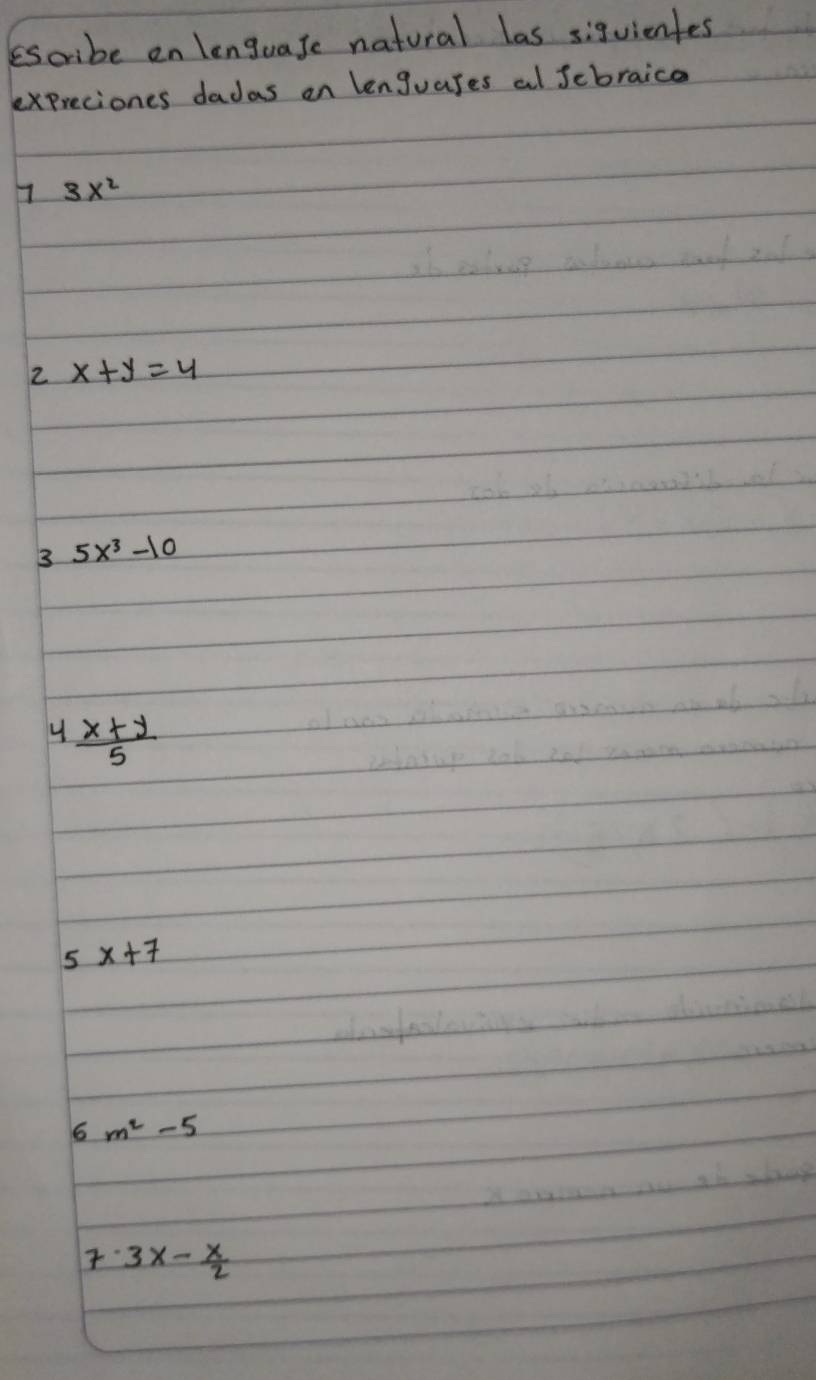 Escribe en lenguaje natural las siguientes
expreciones dadas en lenguajes aljebraico
1 3x²
2 x+y=4
3 5x³-10
4 x+y/5
5 x+7
6 m²-5
7·3x-x/2